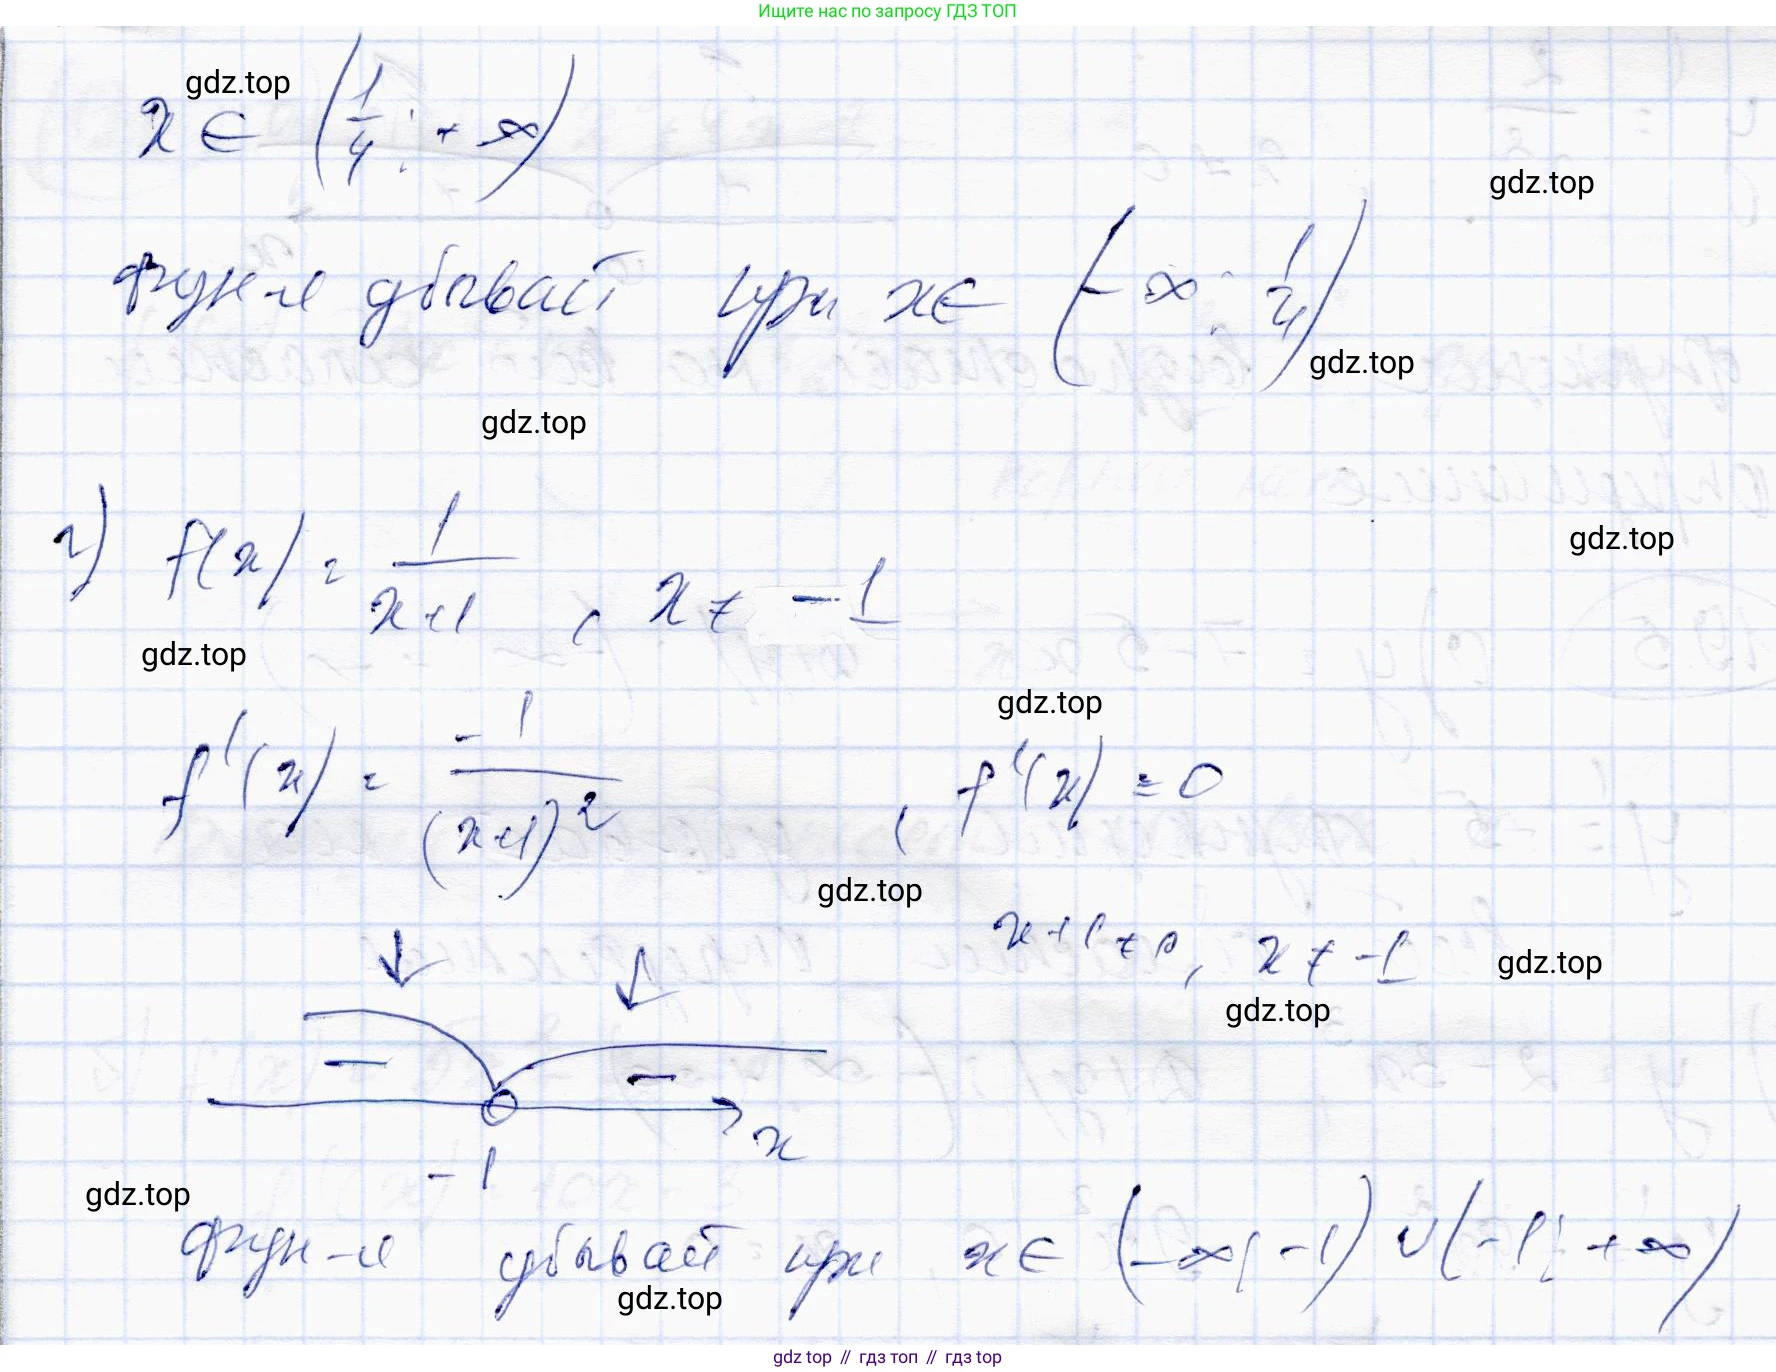 Ищите нас по запросу ГДЗ ТОП
gdz.top
x ∈ (1/4; +∞)
gdz.top
функ-я убывает при x ∈ (-∞; 1/4)
gdz.top
gdz.top
г) f(x) = 1/(x+1), x ≠ -1
gdz.top
gdz.top
f'(x) = -1/(x+1)², f'(x) = 0
gdz.top
gdz.top
x+1 ≠ 0, x ≠ -1
gdz.top
gdz.top
- -
x
-1
gdz.top
функ-я убывает при x ∈ (-∞; -1) ∪ (-1; +∞)
gdz.top
gdz top // гдз топ // гдз top